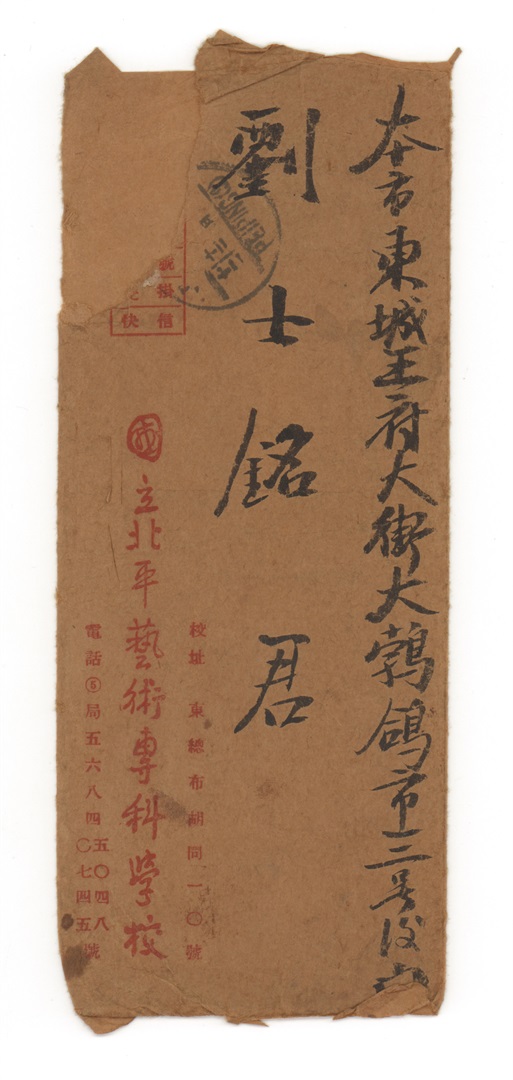 本市東城王府大街大鵓鴿市十二号後
劉士銘君
PEIPING
號
掛
快信
校址 東總布胡同一〇號
國立北平藝術專科學校
電話⑤局五六八四
五〇四八
〇七四五號